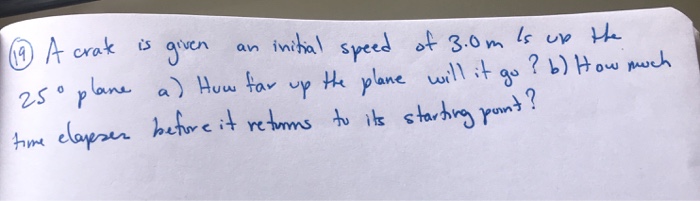 (19) A crate is given an initial speed of 3.0 m/s up the
25° plane a) How far up the plane will it go? b) How much
time elapses before it returns to its starting point?